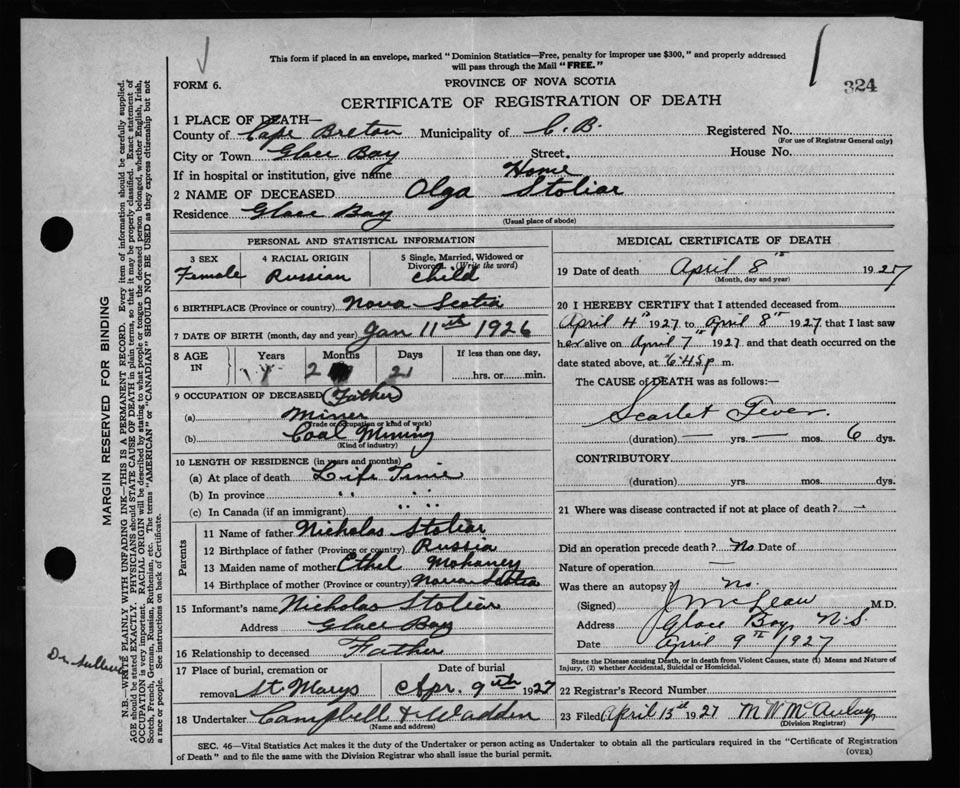 This form if placed in an envelope, marked "Dominion Statistics—Free, penalty for improper use $300," and properly addressed
will pass through the Mail "FREE."
324
FORM 6.
PROVINCE OF NOVA SCOTIA
CERTIFICATE OF REGISTRATION OF DEATH
1 PLACE OF DEATH—
County of Cape Breton Municipality of C. B. Registered No.
(For use of Registrar General only)
City or Town Glace Bay Street. House No.
If in hospital or institution, give name Home
2 NAME OF DECEASED Olga Stoliar
Residence Glace Bay
(Usual place of abode)
PERSONAL AND STATISTICAL INFORMATION
3 SEX 4 RACIAL ORIGIN 5 Single, Married, Widowed or
Divorced (Write the word)
Female Russian Child
6 BIRTHPLACE (Province or country) Nova Scotia
7 DATE OF BIRTH (month, day and year) Jan 11th 1926
8 AGE IN Years Months Days If less than one day,
2 21 hrs. or min.
9 OCCUPATION OF DECEASED Father
(a) Miner
(Trade or occupation or kind of work)
(b) Coal Mining
(Kind of industry)
10 LENGTH OF RESIDENCE (in years and months)
(a) At place of death Life Time
(b) In province " "
(c) In Canada (if an immigrant) " "
Parents
11 Name of father Nicholas Stoliar
12 Birthplace of father (Province or country) Russia
13 Maiden name of mother Ethel Mohaney
14 Birthplace of mother (Province or country) Nova Scotia
15 Informant's name Nicholas Stoliar
Address Glace Bay
16 Relationship to deceased Father
17 Place of burial, cremation or Date of burial
removal St Marys Apr. 9th 1927
18 Undertaker Campbell & Wadden
(Name and address)
MEDICAL CERTIFICATE OF DEATH
19 Date of death April 8th 1927
(Month, day and year)
20 I HEREBY CERTIFY that I attended deceased from
April 4th 1927 to April 8th 1927 that I last saw
her alive on April 7th 1927 and that death occurred on the
date stated above, at 6.45 p m.
The CAUSE of DEATH was as follows:—
Scarlet Fever.
(duration) — yrs. — mos. 6 dys.
CONTRIBUTORY
(duration) yrs. mos. dys.
21 Where was disease contracted if not at place of death? —
Did an operation precede death? No Date of
Nature of operation —
Was there an autopsy? No.
(Signed) J McLean M.D.
Address Glace Bay N.S.
Date April 9th 1927
State the Disease causing Death, or in death from Violent Causes, state (1) Means and Nature of
Injury, (2) whether Accidental, Suicidal or Homicidal.
22 Registrar's Record Number
23 Filed April 13th 1927 M W McAulay
(Division Registrar)
SEC. 46—Vital Statistics Act makes it the duty of the Undertaker or person acting as Undertaker to obtain all the particulars required in the "Certificate of Registration
of Death" and to file the same with the Division Registrar who shall issue the burial permit.
(OVER)
MARGIN RESERVED FOR BINDING
N.B.—WRITE PLAINLY WITH UNFADING INK—THIS IS A PERMANENT RECORD. Every item of information should be carefully supplied.
AGE should be stated EXACTLY. PHYSICIANS should STATE CAUSE OF DEATH in plain terms, so that it may be properly classified. Exact statement of
OCCUPATION is very important. RACIAL ORIGIN will be described by stating to what people or tongue the deceased person belonged, whether English, Irish,
Scotch, French, German, Russian, Ruthenian, etc. The terms "AMERICAN" or "CANADIAN" SHOULD NOT BE USED as they express citizenship but not
a race or people. See instructions on back of Certificate.